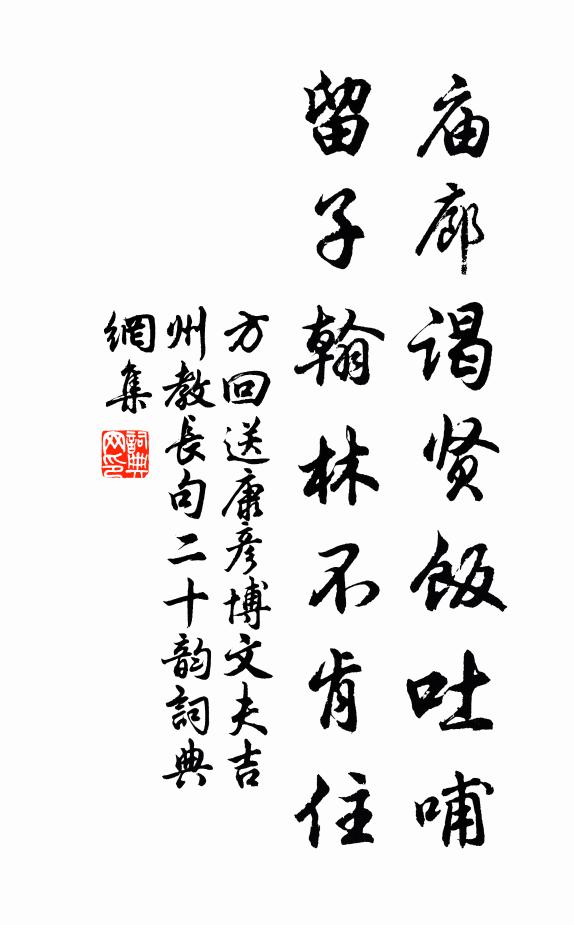 庙廊谒贤饭吐哺
留子翰林不肯住
方回送康彦博文夫吉
州教長句二十韵詞典
網集
詞典网印